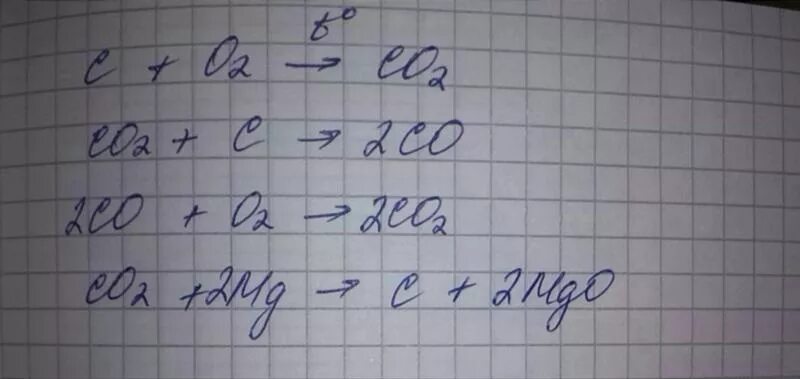 C + O₂ →t° CO₂
CO₂ + C → 2CO
2CO + O₂ → 2CO₂
CO₂ + 2Mg → C + 2MgO